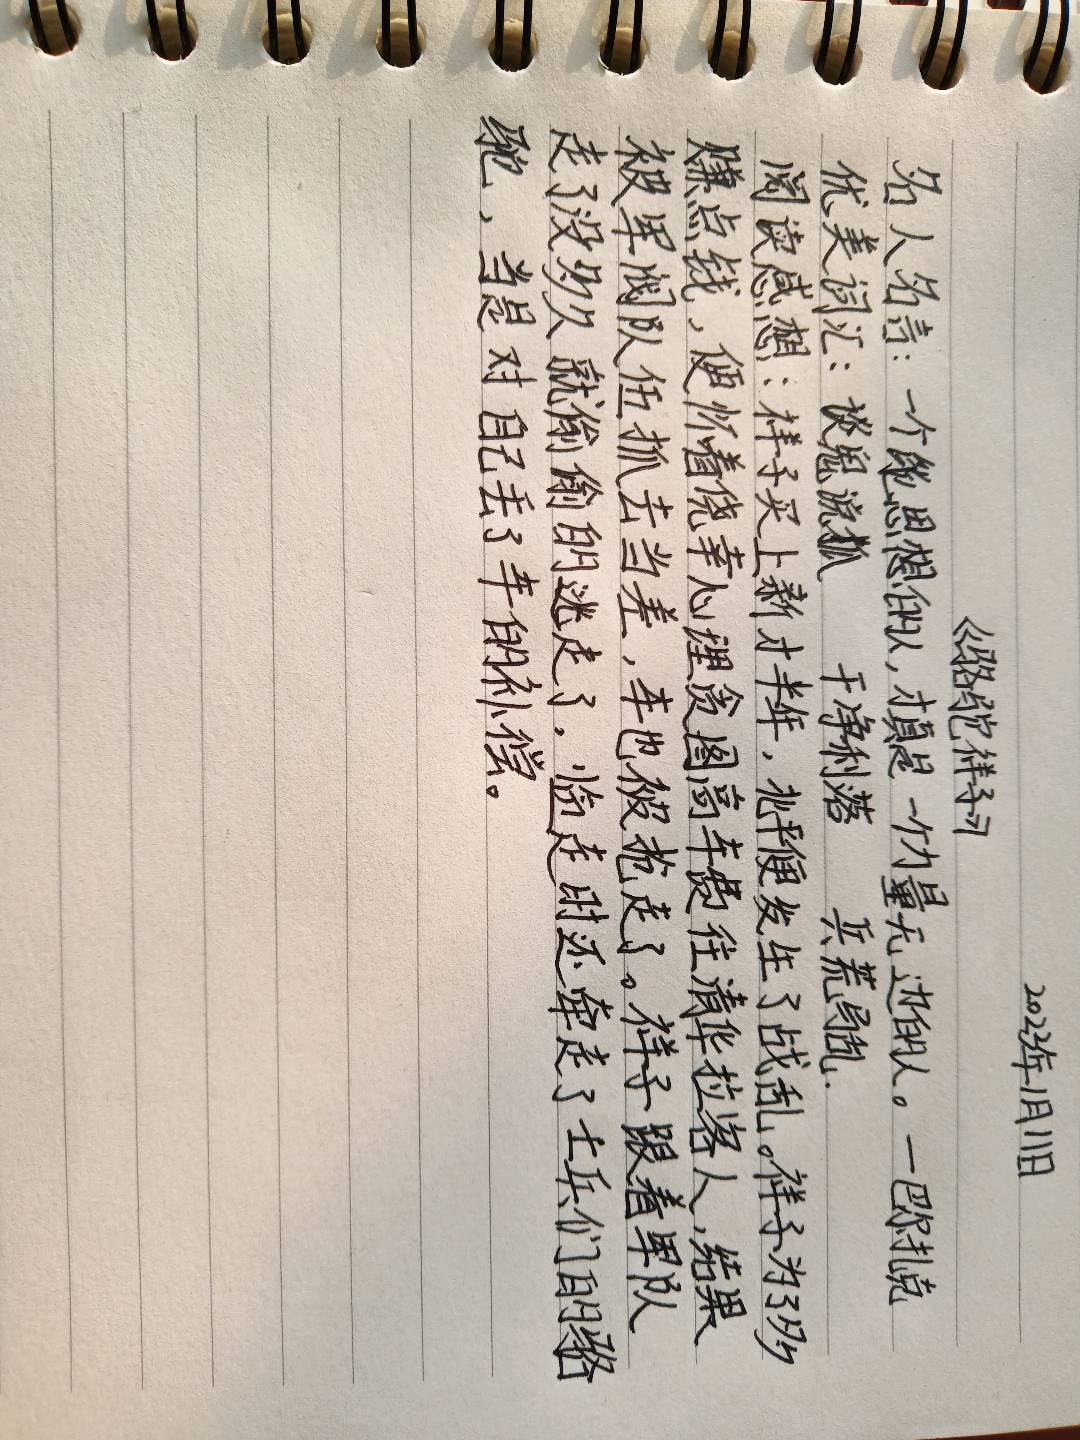 2023年1月11日
《骆驼祥子》
名人名言：一个能思想的人，才真是一个力量无边的人。一巴尔扎克
优美词汇：谈鬼说狐 干净利落 兵荒马乱.
阅读感想：祥子买上新才半年，北平便发生了战乱。祥子为了多
赚点钱，便怀着侥幸心理贪图高车费往清华拉客人，结果
被军阀队伍抓去当差，车也被抢走了。祥子跟着军队
走了没多久就偷偷的逃走了，临走时还牵走了士兵们的骆
驼，当是对自己丢了车的补偿。